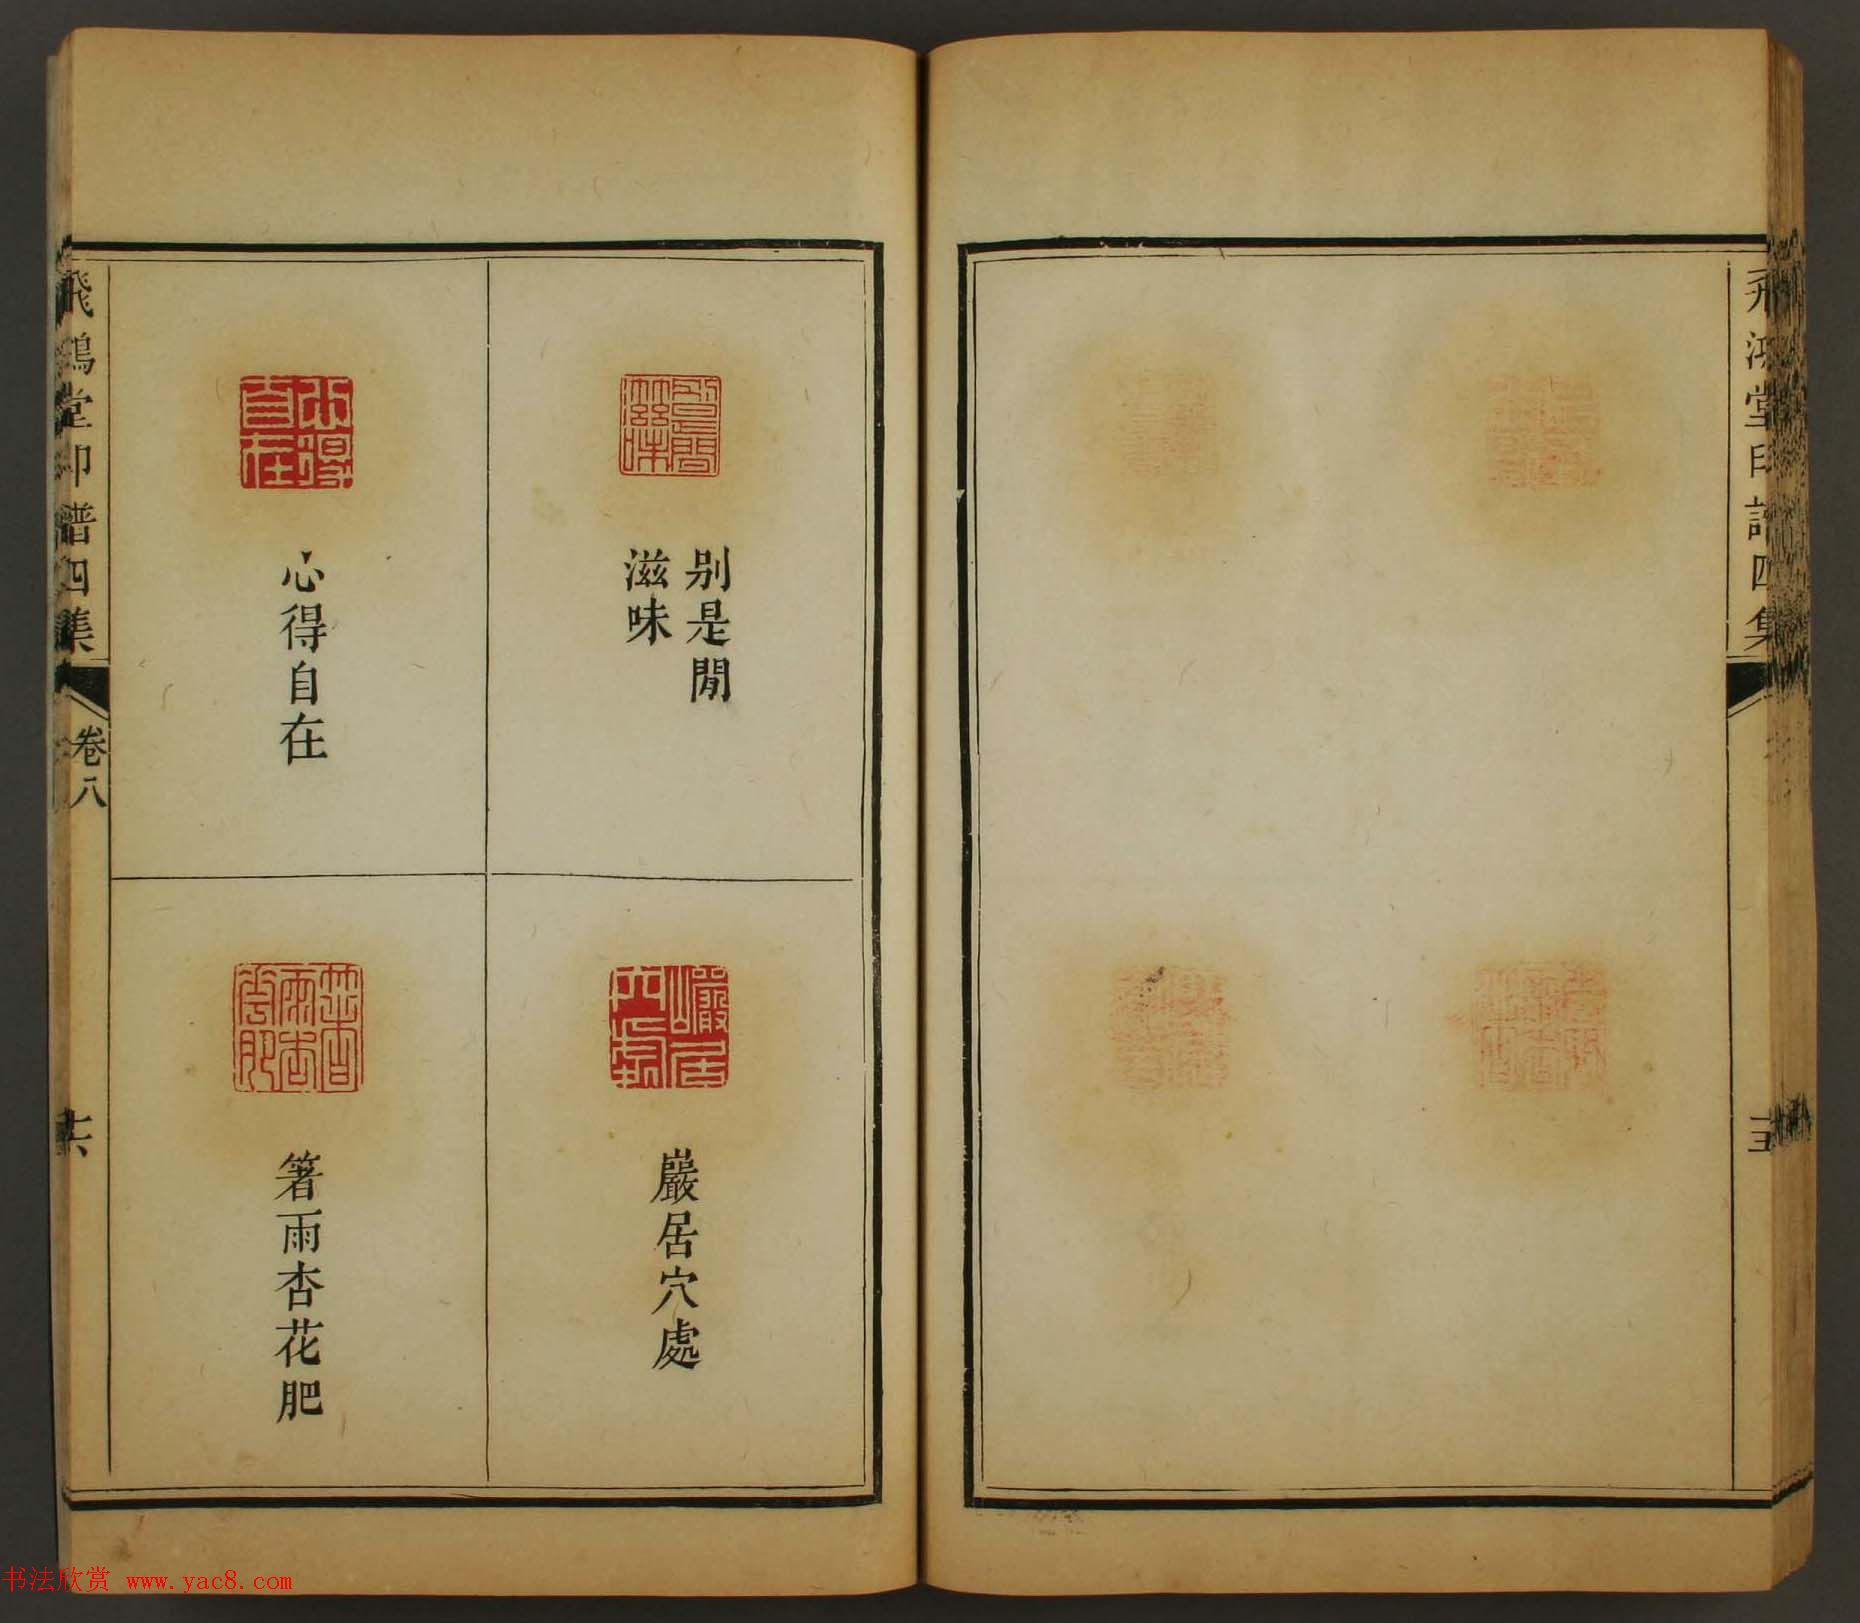 飛鴻堂印譜四集
十五
別是閒
滋味
心得自在
巖居穴處
箸雨杏花肥
飛鴻堂印譜四集
卷八
十六
书法欣赏 www.yac8.com